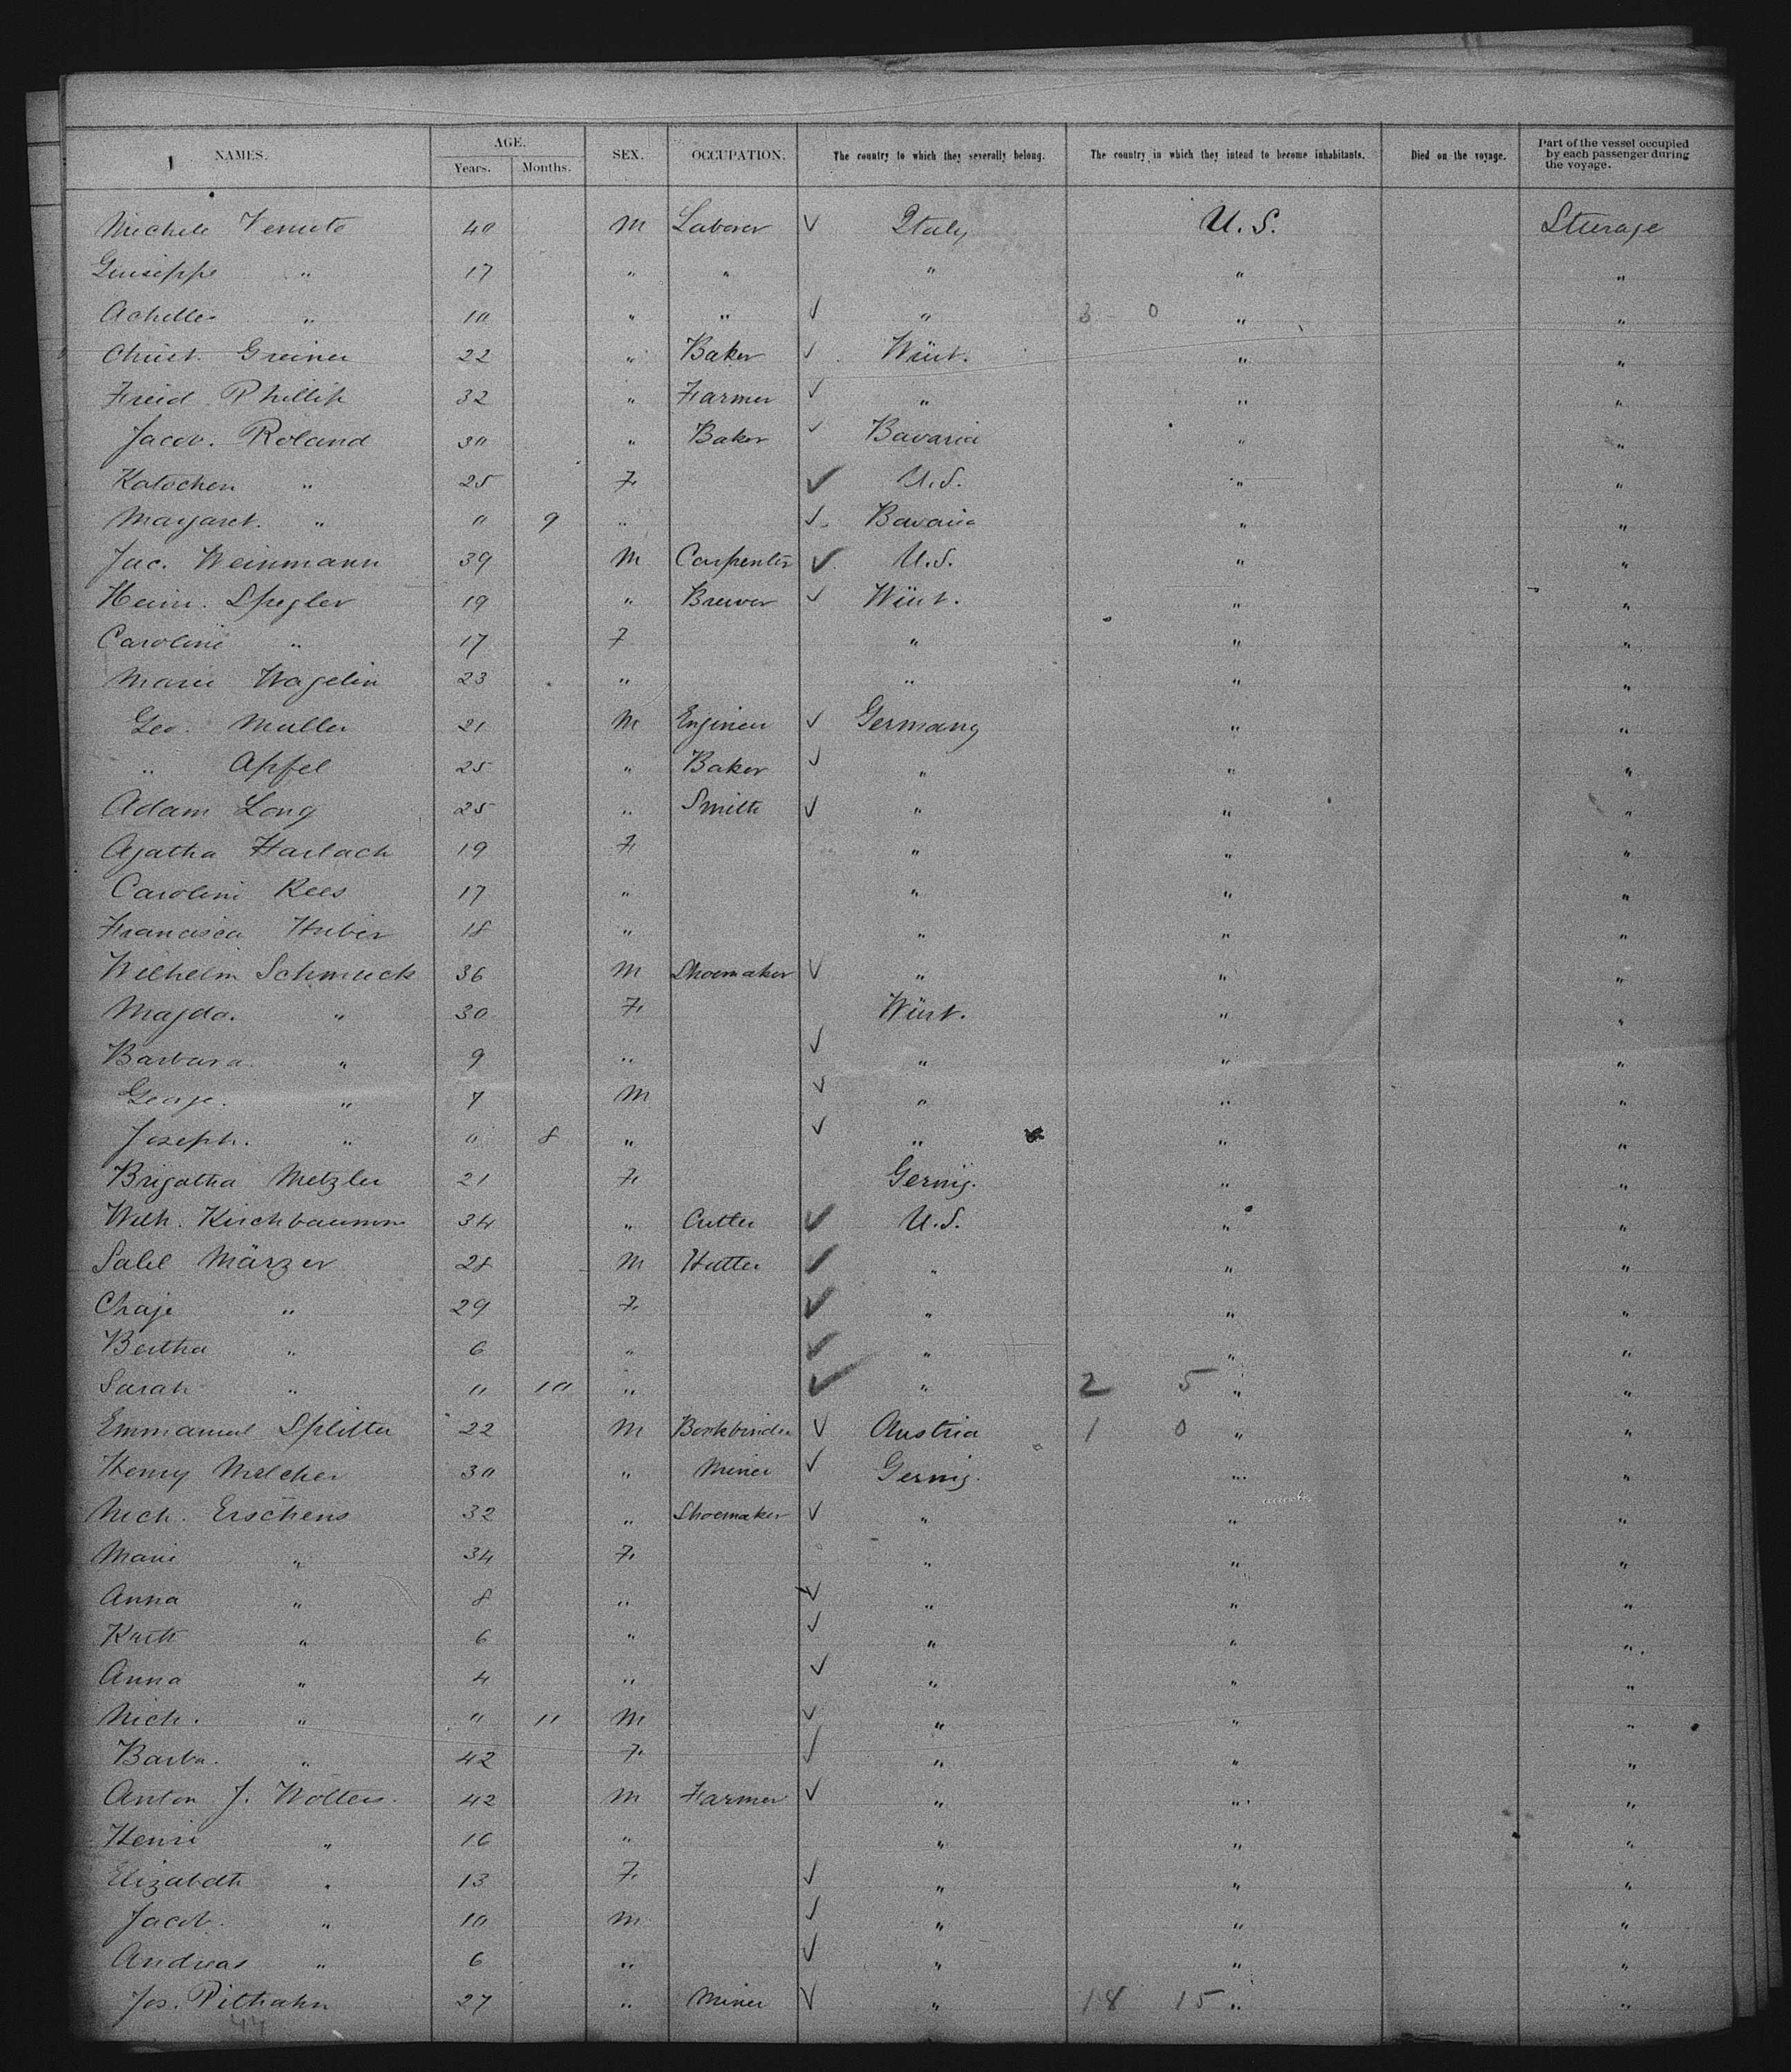 NAMES. AGE. Years. Months. SEX. OCCUPATION. The country to which they severally belong. The country in which they intend to become inhabitants. Died on the voyage. Part of the vessel occupied by each passenger during the voyage.
Michele 40 M Laborer ✓ Italy U.S. Steerage
Guiseppe " 17 " " " " "
Achilles " 10 " " ✓ " 3 0 " "
Christ. Greiner 22 " Baker ✓ Würt. " "
Freid Phillip 32 " Farmer ✓ " " "
Jacob. Roland 30 " Baker ✓ Bavaria " "
Katochen " 25 F. ✓ U.S. " "
Margaret. " " 9 " ✓ Bavaria " "
Jac. Weinmann 39 M Carpenter ✓ U.S. " "
Heinr. Spegler 19 " Brewer ✓ Würt. " "
Caroline " 17 F " " "
Marie Wagelin 23 " " " "
Geo. Muller 21 M Engineer ✓ Germany " "
" Apfel 25 " Baker ✓ " " "
Adam Long 25 " Smith ✓ " " "
Agatha Harlach 19 F. " " "
Caroline Rees 17 " " " "
Francisca Huber 18 " " " "
Wilhelm Schmuck 36 M Shoemaker ✓ " " "
Magda. " 30 F. Würt. " "
Barbara " 9 " ✓ " " "
George. " 7 M ✓ " " "
Joseph. " " 8 " ✓ " " "
Brigatha Metzler 21 F. Germy. " "
Wilh. Kirchbaumm 34 " Cutter ✓ U.S. " "
Salel Märzer 28 M Hatter ✓ " " "
Chaje " 29 F. ✓ " " "
Bertha " 6 " ✓ " " "
Sarah " " 10 " ✓ " 2 5 " "
Emmanuel Splitter 22 M Bookbinder ✓ Austria 1 0 " "
Henry Melcher 30 " Miner ✓ Germy. " "
Nich. Erschens 32 " Shoemaker ✓ " " "
Marie " 34 F. " " "
Anna " 8 " ✓ " " "
Kath " 6 " ✓ " " "
Anna " 4 " ✓ " " "
Nich. " " 11 M ✓ " " "
Barba. " 42 F. ✓ " " "
Anton J. Wolters. 42 M Farmer ✓ " " "
Henri " 16 " " " "
Elizabeth " 13 F. ✓ " " "
Jacob. " 10 M ✓ " " "
Andreas " 6 " ✓ " " "
Jos. Pithahn 27 " Miner ✓ " 18 15 " "
44